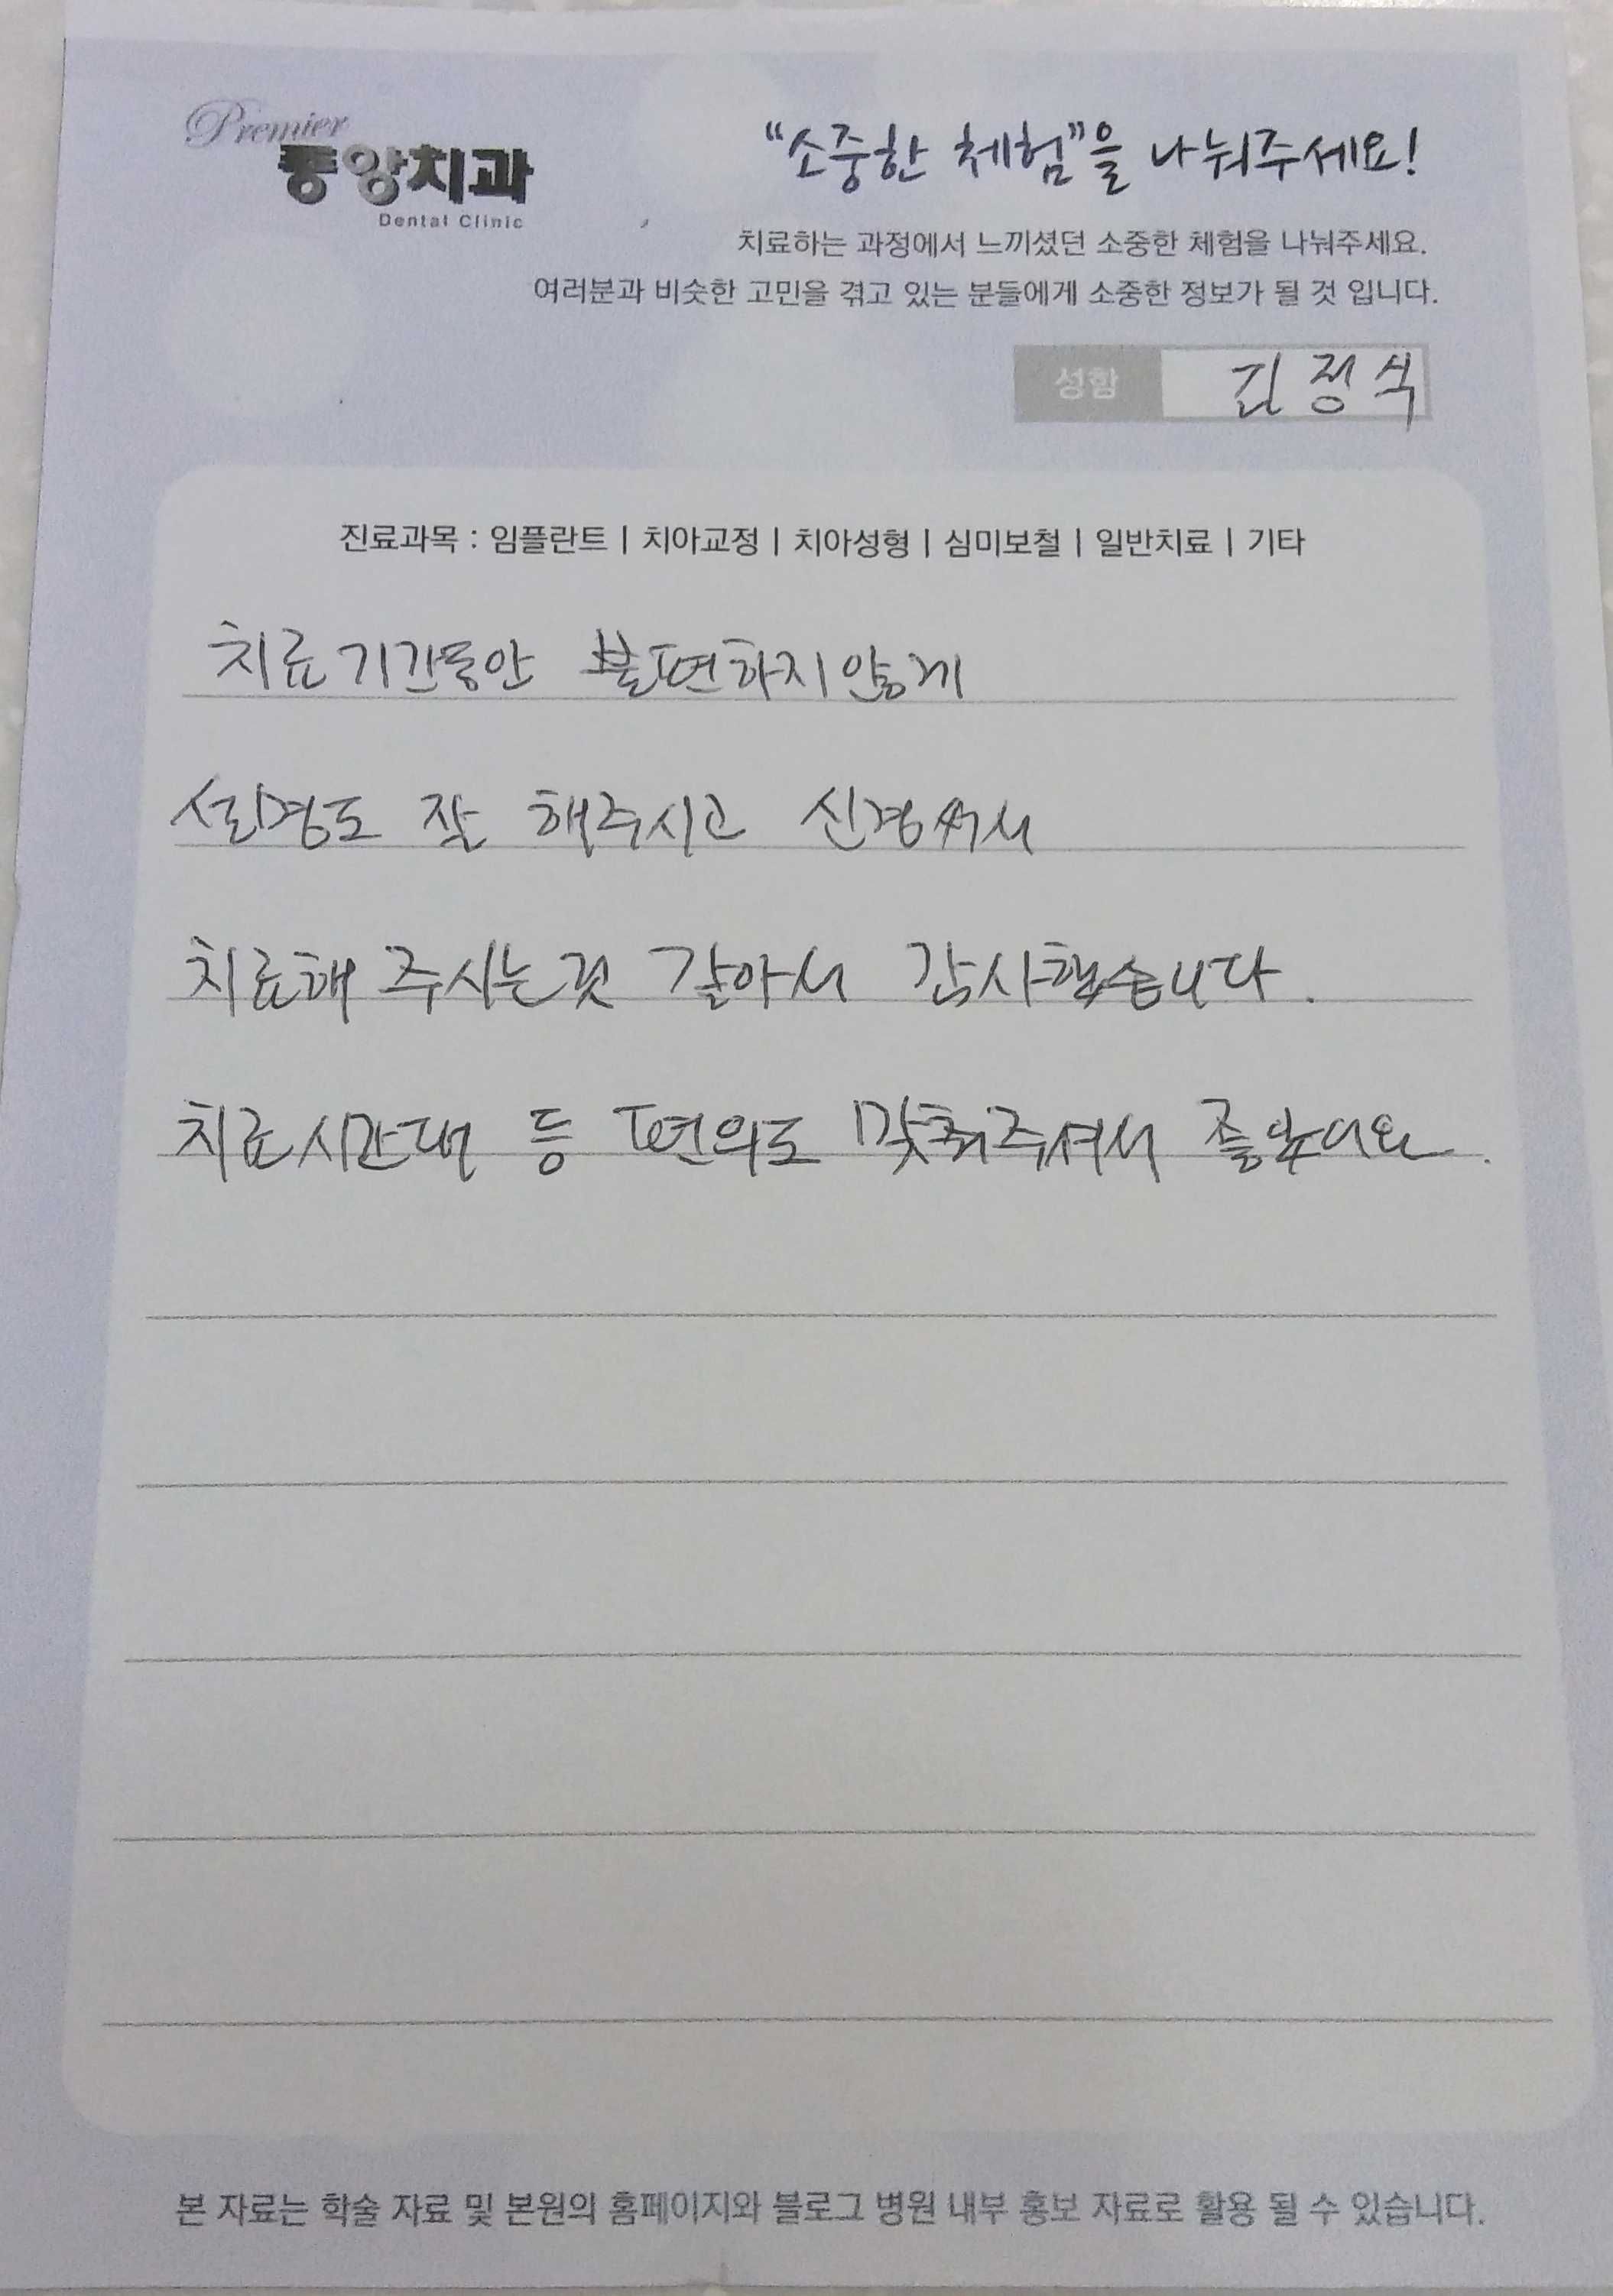 Premier
중앙치과
Dental Clinic
"소중한 체험"을 나눠주세요!
치료하는 과정에서 느끼셨던 소중한 체험을 나눠주세요.
여러분과 비슷한 고민을 겪고 있는 분들에게 소중한 정보가 될 것 입니다.
성함 김정식
진료과목 : 임플란트 | 치아교정 | 치아성형 | 심미보철 | 일반치료 | 기타
치료기간동안 불편하지않게
설명도 잘 해주시고 신경써서
치료해 주시는것 같아서 감사했습니다.
치료시간대 등 편의도 맞춰주셔서 좋았어요.
본 자료는 학술 자료 및 본원의 홈페이지와 블로그 병원 내부 홍보 자료로 활용 될 수 있습니다.